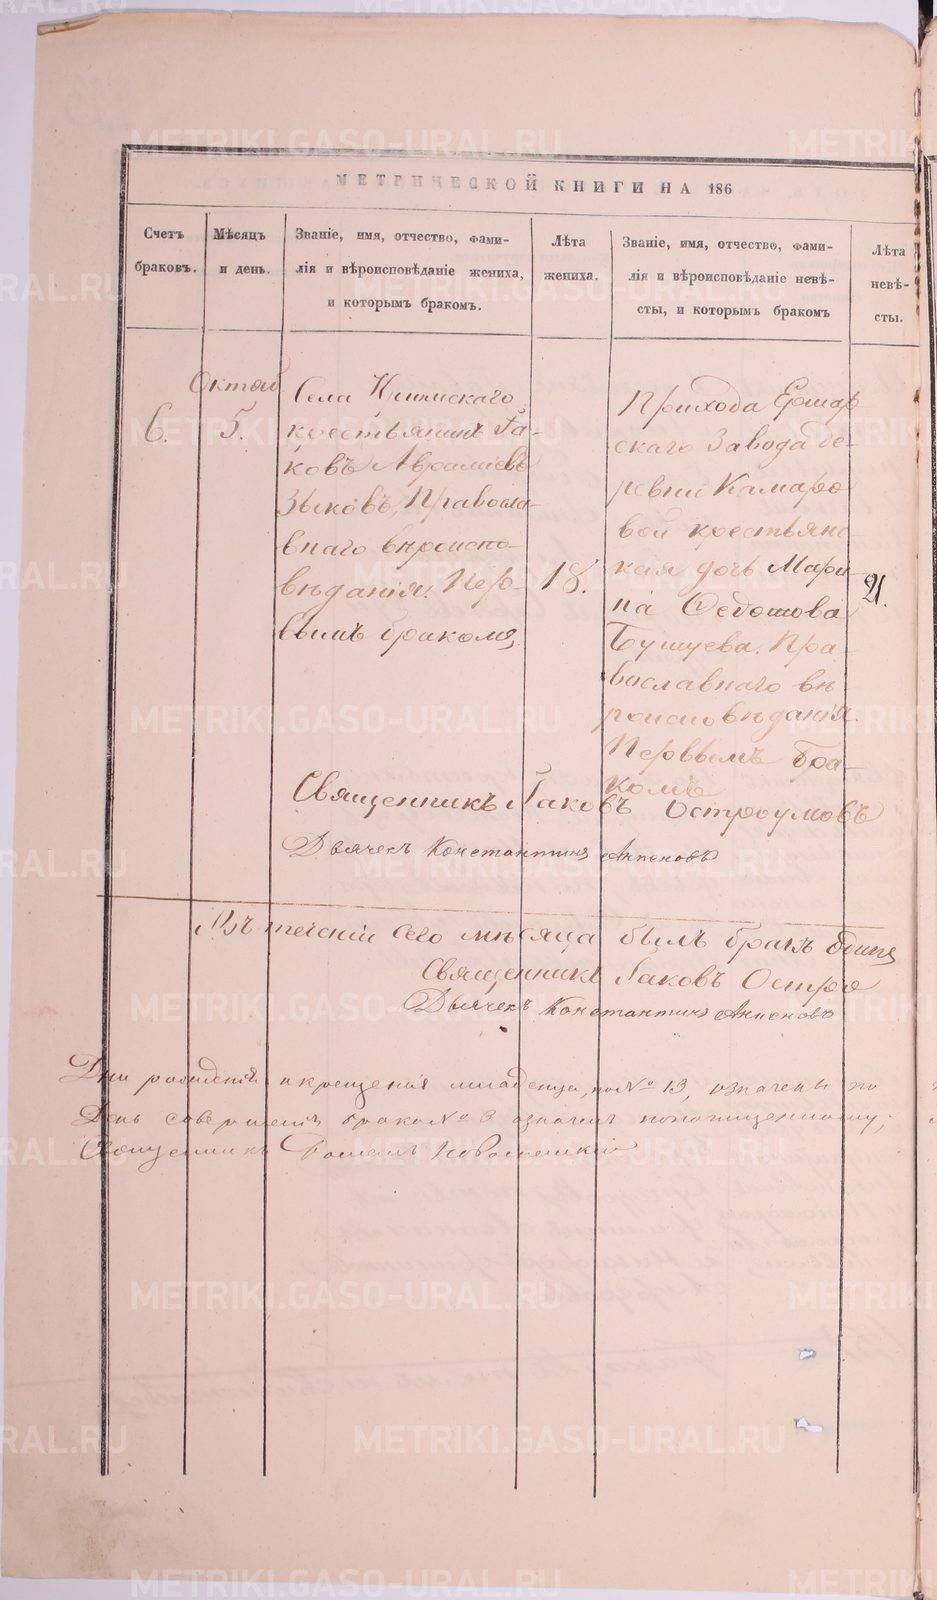 МЕТРИЧЕСКОЙ КНИГИ НА 186
Счетъ браковъ.
Мѣсяцъ и день.
Званіе, имя, отчество, фами-
лія и вѣроисповѣданіе жениха,
и которымъ бракомъ.
Лѣта жениха.
Званіе, имя, отчество, фами-
лія и вѣроисповѣданіе невѣ-
сты, и которымъ бракомъ
Лѣта невѣ-
сты.
6.
Октяб
5.
Села
крестьянинъ Іа-
ковъ Авраміевъ
Зыковъ, Правосла-
внаго вѣроиспо-
вѣданія. Пер-
вымъ бракомъ
18.
Прихода
скаго Завода де-
ревни Камаро
вой крестьянс
кая дочь Мари
на Федотова
Бушуева. Пра-
вославнаго вѣ
роисповѣданія.
Перввымъ бра-
комъ
21.
Священникъ Іаковъ Остроумовъ
Дьячекъ Константинъ
Въ теченіи сего мѣсяца былъ бракъ одинъ
Священникъ Іаковъ Остро
Дьячекъ Константинъ
Дни рожденія и крещенія младенца, по № 13, означены по
День совершенія брака № 3 означенъ почищенному;
Священникъ
METRIKI.GASO-URAL.RU